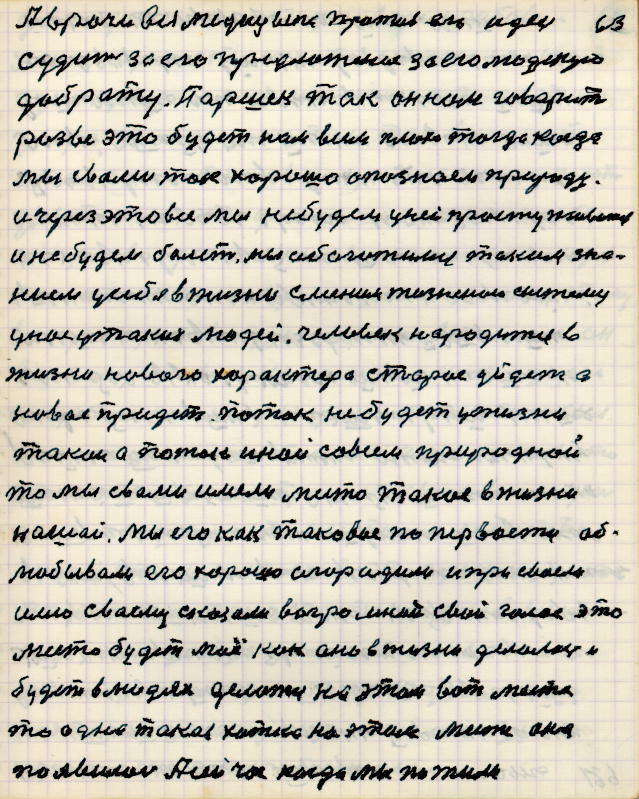 А врачи все медицине против его идеи 63
судит за его предложение за его людскую
доброту. Паршек так он нам говорит
розве это будет нам всем плохо тогда когда
мы с вами так хорошо опознаем природу.
и через это все мы небудем у ней простуживатся
и небудем болет. мы обогатимся таким зна-
нием у себя в жизни сменим тизненою систему
у нас у таких людей. человек народится в
жизни нового характера старое уйдет а
новое придет. поток не будет у жизни
такой а поток иной совсем природной
то мы с вами имели место такое в жизни
нашай. Мы его как таковое по первости об-
любывали его хорошо огородили и при своем
имю сваему сказали вогромной свой голос это
место будет моё как оно в жизни делалос и
будет в людях делатся на этом вот месте
то одна такая хатка на этом месте она
появилас А сейчас когда мы пожили